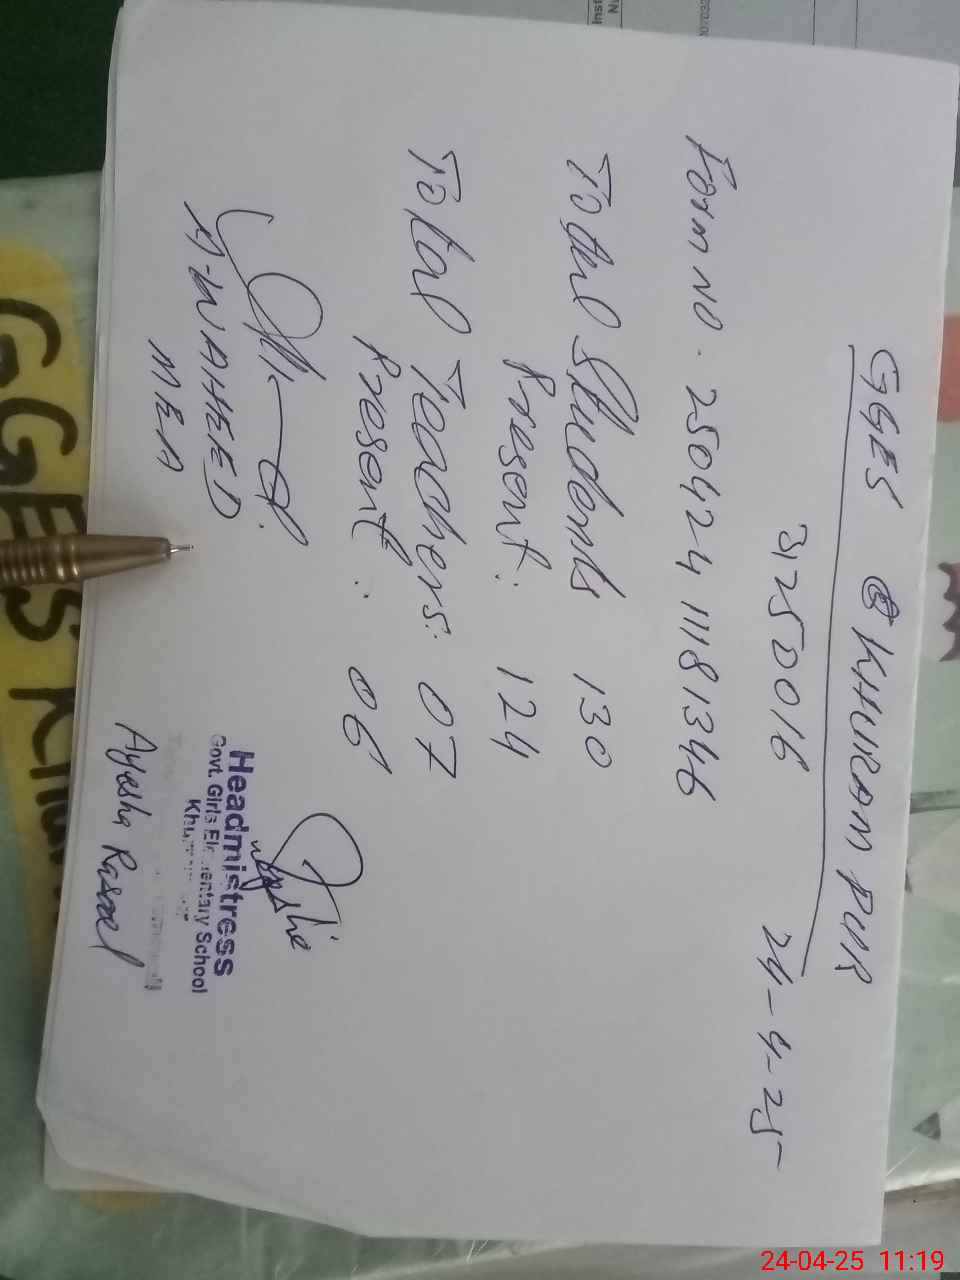 GGES @ KHURAM PUR
31250016 24-4-25
Form no. 250424 1118 1346
Total Students 130
Present: 124
Total Teachers: 07
Present: 06
A-WAHEED
MEA
Headmistress
Govt. Girls Elementary School
Ayesha Rasool
GGES
24-04-25 11:19